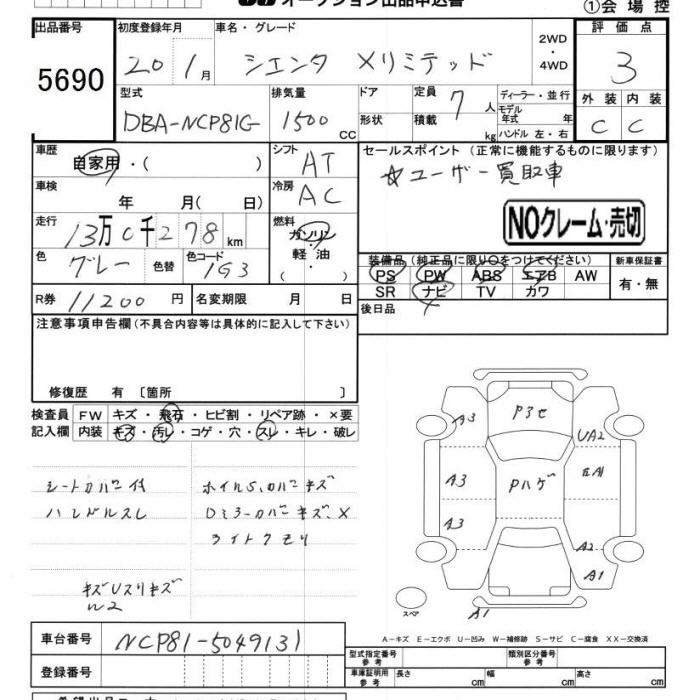 オークション出品申込書
①会場控
出品番号 初度登録年月 車名・グレード 2WD・4WD 評価点
5690 20 1月 シエンタ Xリミテッド 3
型式 排気量 ドア 定員 7人 ディーラー・並行 外装 内装
DBA-NCP81G 1500cc 形状 積載 kg モデル年式 年 ハンドル 左・右 C C
車歴 自家用・( ) シフト AT セールスポイント (正常に機能するものに限ります)
車検 年 月( 日) 冷房 AC ☆ユーザー買取車
走行 13万0千278km 燃料 ガソリン・軽油・ NOクレーム・売切
色 グレー 色替 色コード 1G3 装備品(純正品に限り○をつけてください) 新車保証書
PS PW ABS エアB AW 有・無
R券 11200円 名変期限 月 日 SR ナビ TV カワ
注意事項申告欄(不具合内容等は具体的に記入して下さい) 後日品
修復歴 有 〔箇所 〕
検査員 FW キズ・飛石・ヒビ割・リペア跡・×要
記入欄 内装 キズ・汚レ・コゲ・穴・スレ・キレ・破レ
シートカバー付 ホイルS,カバーキズ
ハンドルスレ Dミラーカバーキズ、X
ライトクモリ
A3 Pヨセ UA2
A3 Pハゲ A1
A3 A2
A1
スペア A1
A－キズ E－エクボ U－凹み W－補修跡 S－サビ C－腐食 XX－交換済
車台番号 NCP81-5049131
型式指定番号 参考 類別区分番号 参考
登録番号 車庫証明用 参考 長さ cm 幅 cm 高さ cm